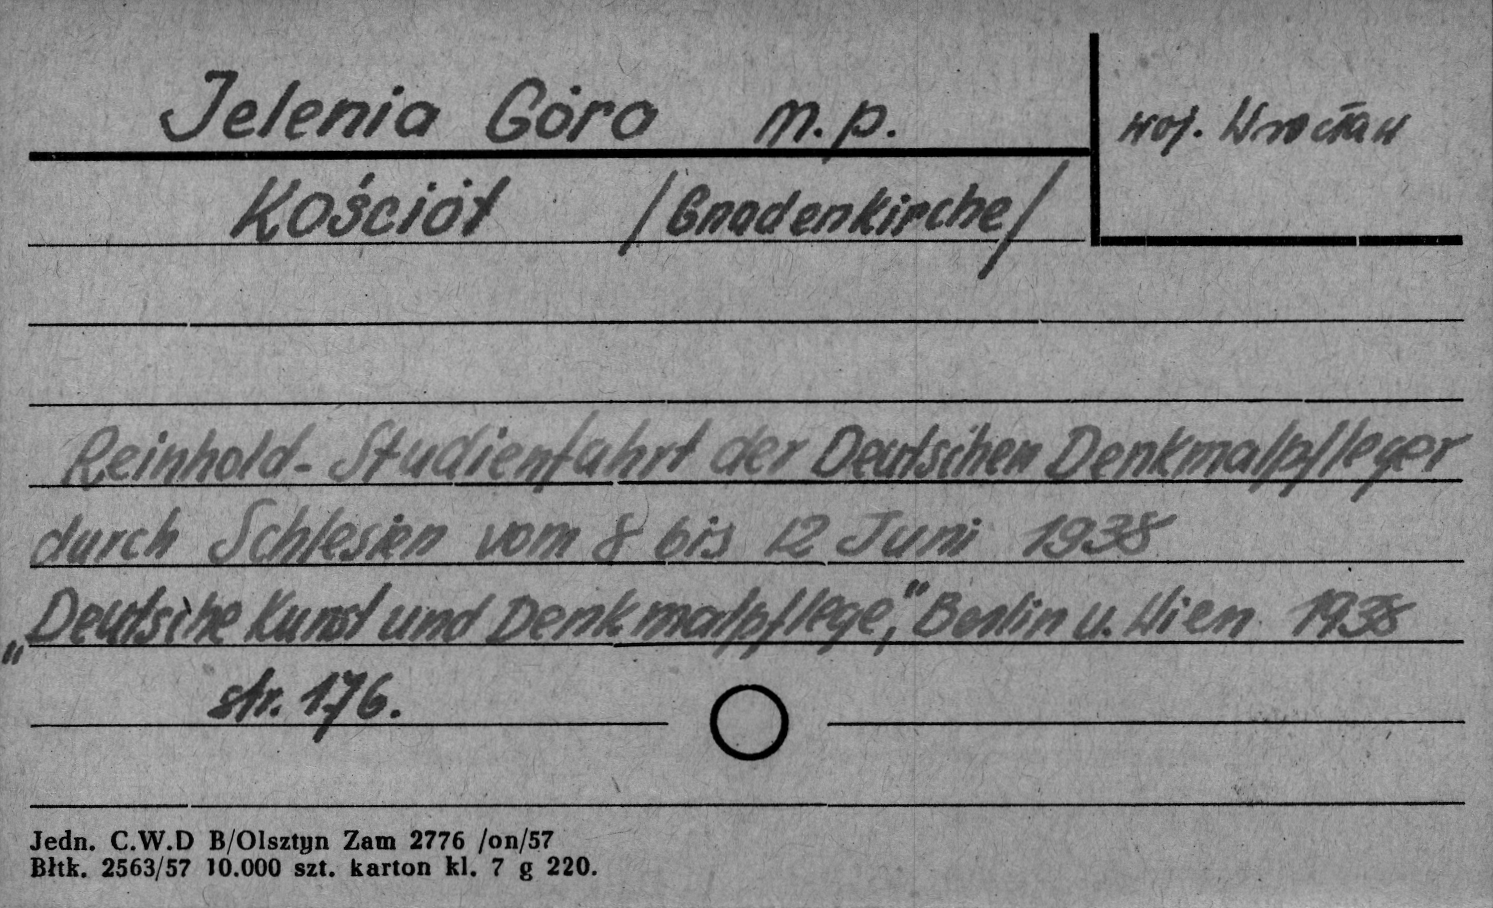 Jelenia Góra m.p.
woj. Wrocław
Kościół /Gnadenkirche/
Reinhold - Studienfahrt der Deutschen Denkmalpfleger
durch Schlesien vom 8 bis 12 Juni 1938
„Deutsche Kunst und Denkmalpflege," Berlin u. Wien 1938
str. 176.
Jedn. C.W.D B/Olsztyn Zam 2776 /on/57
Błtk. 2563/57 10.000 szt. karton kl. 7 g 220.